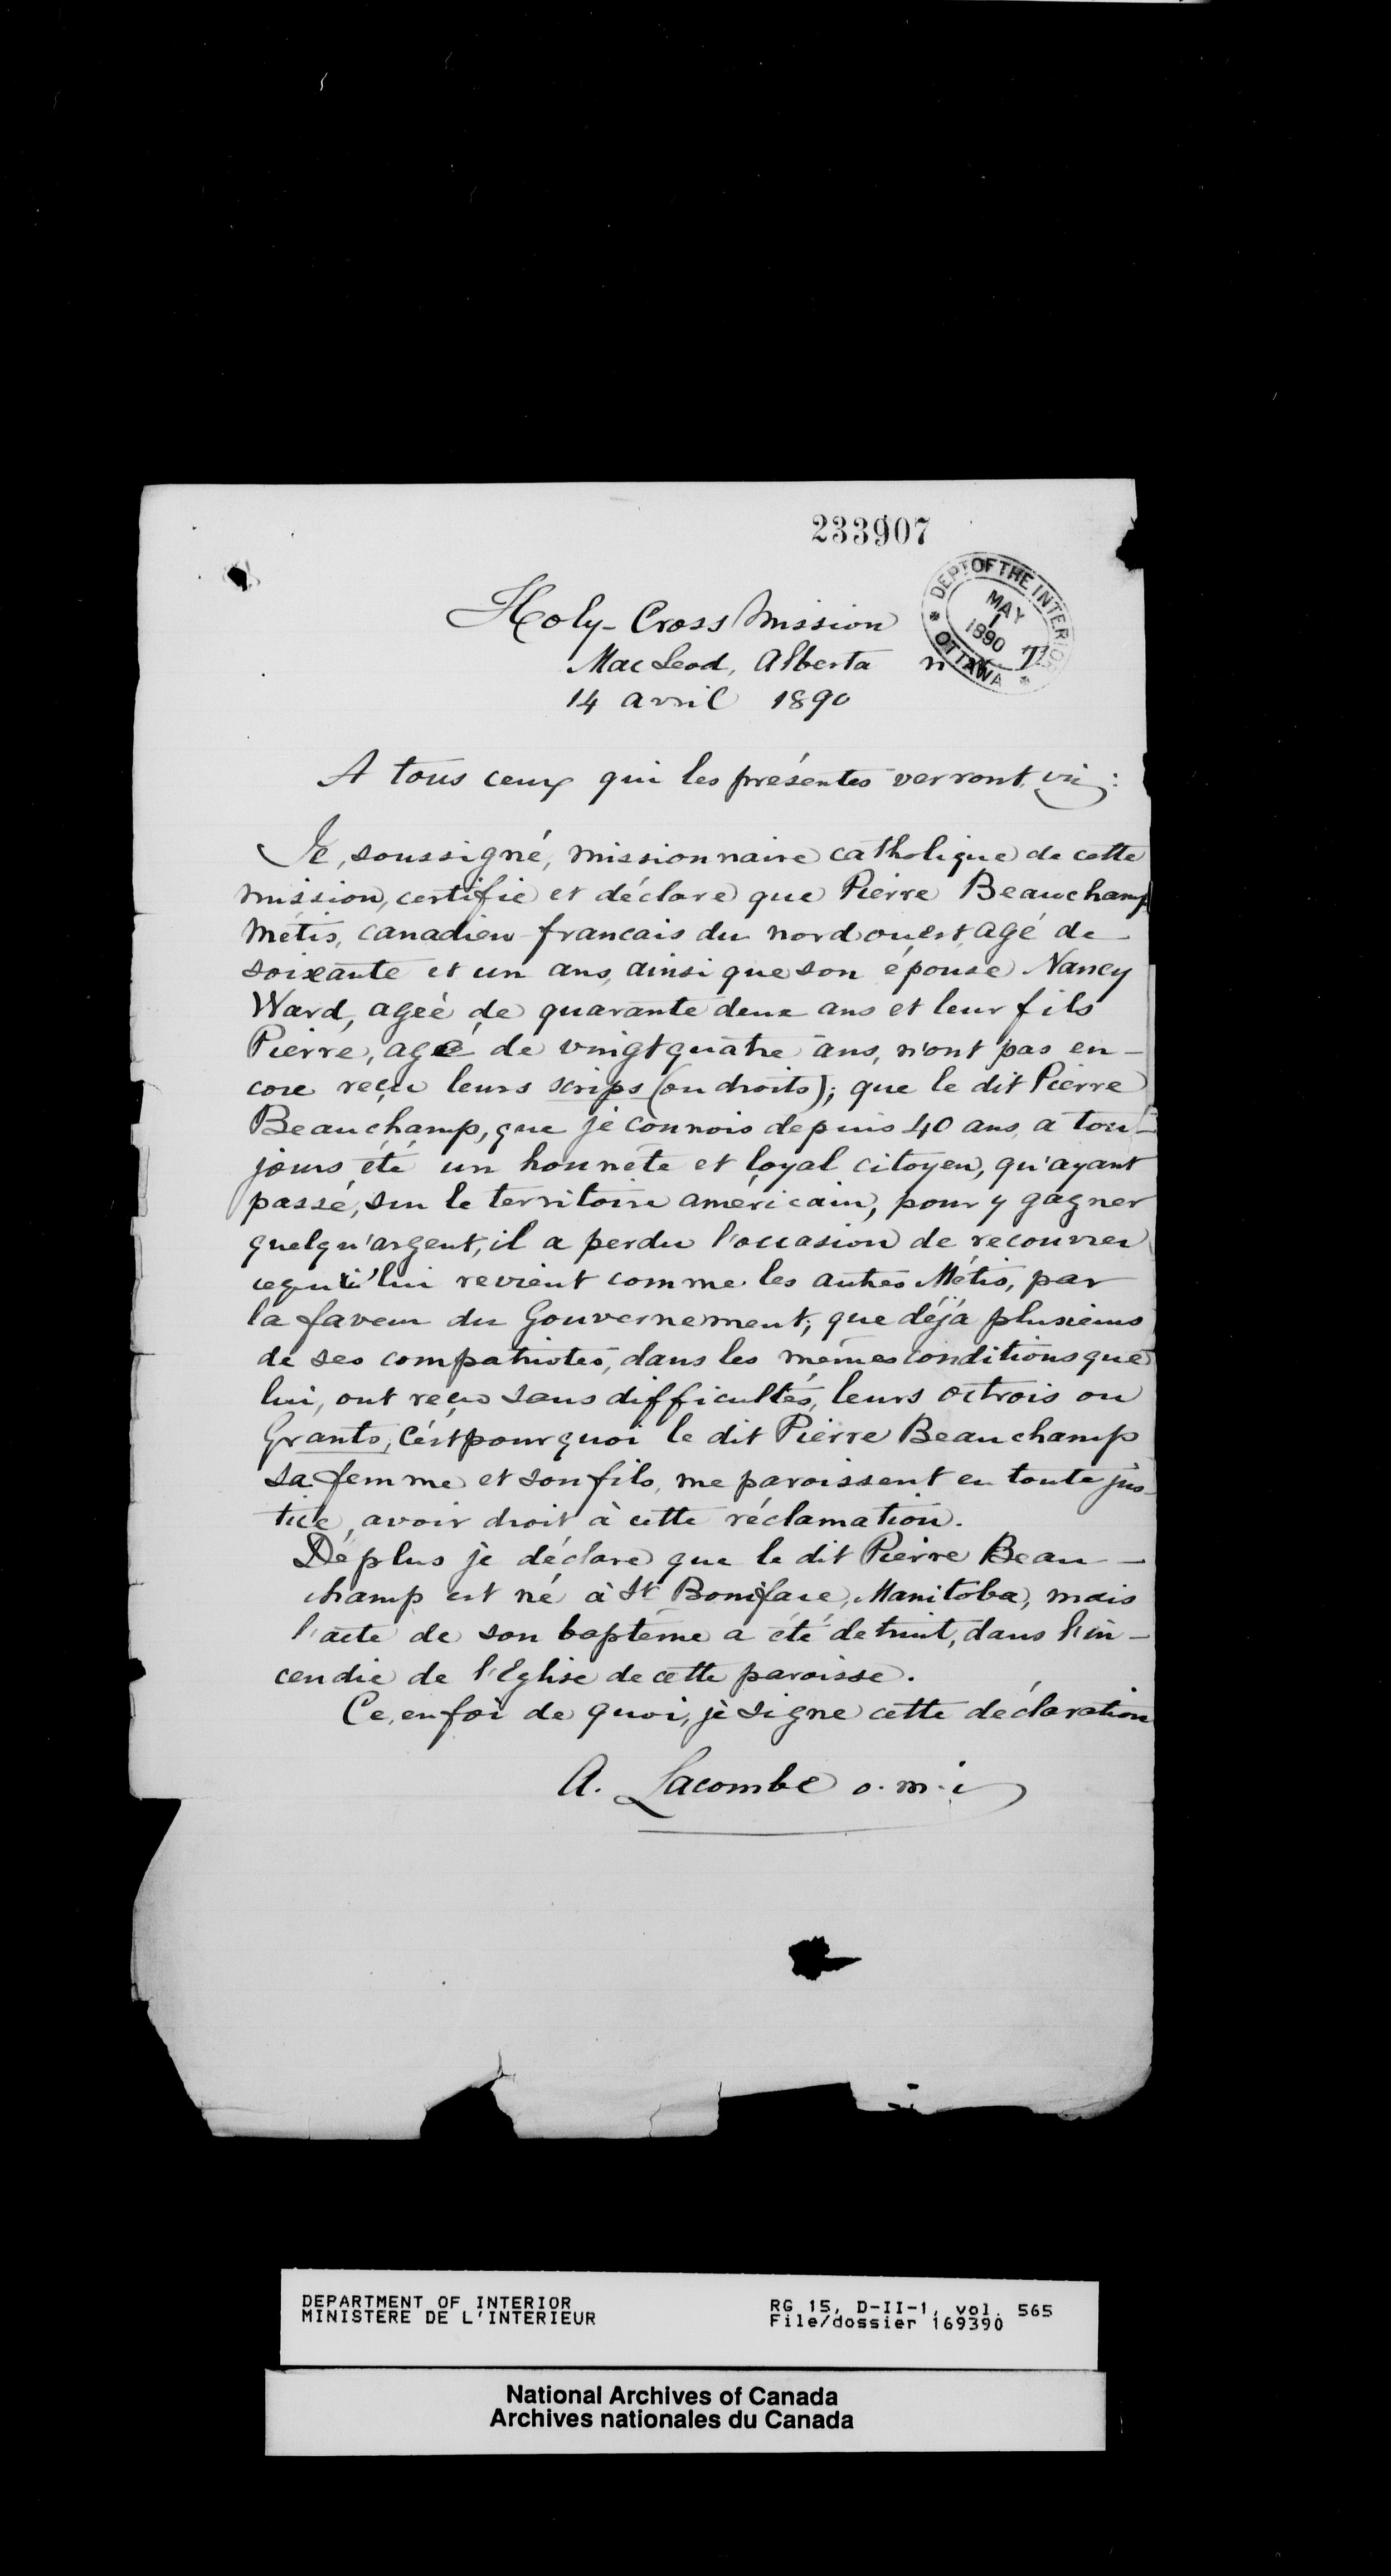 233907
DEPT OF THE INTERIOR
MAY
1
1890
* OTTAWA *
Holy-Cross Mission
MacLeod, Alberta
14 avril 1890
A tous ceux qui les présentes verront,
Je, soussigné, missionnaire catholique de cette
mission, certifie et déclare que Pierre Beauchamp
Métis, canadien-francais du nord ouest, agé de
soixante et un ans, ainsi que son épouse Nancy
Ward, ageé de quarante deux ans et leur fils
Pierre, agé de vingt quatre ans, n'ont pas en-
core reçu leurs scrips (ou droits); que le dit Pierre
Beauchamp, que je connois depuis 40 ans, a tou-
jours été un honnête et loyal citoyen, qu'ayant
passé, sur le territoire américain, pour y gagner
quelqu'argent, il a perdu l'occasion de recouvrer
ce qui lui revient comme les autres Métis, par
la faveur du Gouvernement; que déjà plusieurs
de ses compatriotes, dans les mêmes conditions que
lui, ont reçu sans difficultés, leurs octrois ou
Grants, c'est pourquoi le dit Pierre Beauchamp
sa femme et son fils, me paroissent en toute jus-
tice, avoir droit à cette réclamation.
De plus je déclare que le dit Pierre Beau-
champ est né à St Boniface, Manitoba, mais
l'acte de son baptême a été detruit, dans l'in-
cendie de l'Eglise de cette paroisse.
Ce, en foi de quoi, je signe cette déclaration
A. Lacombe o.m.i
DEPARTMENT OF INTERIOR
MINISTERE DE L'INTERIEUR
RG 15, D-II-1, vol. 565
File/dossier 169390
National Archives of Canada
Archives nationales du Canada